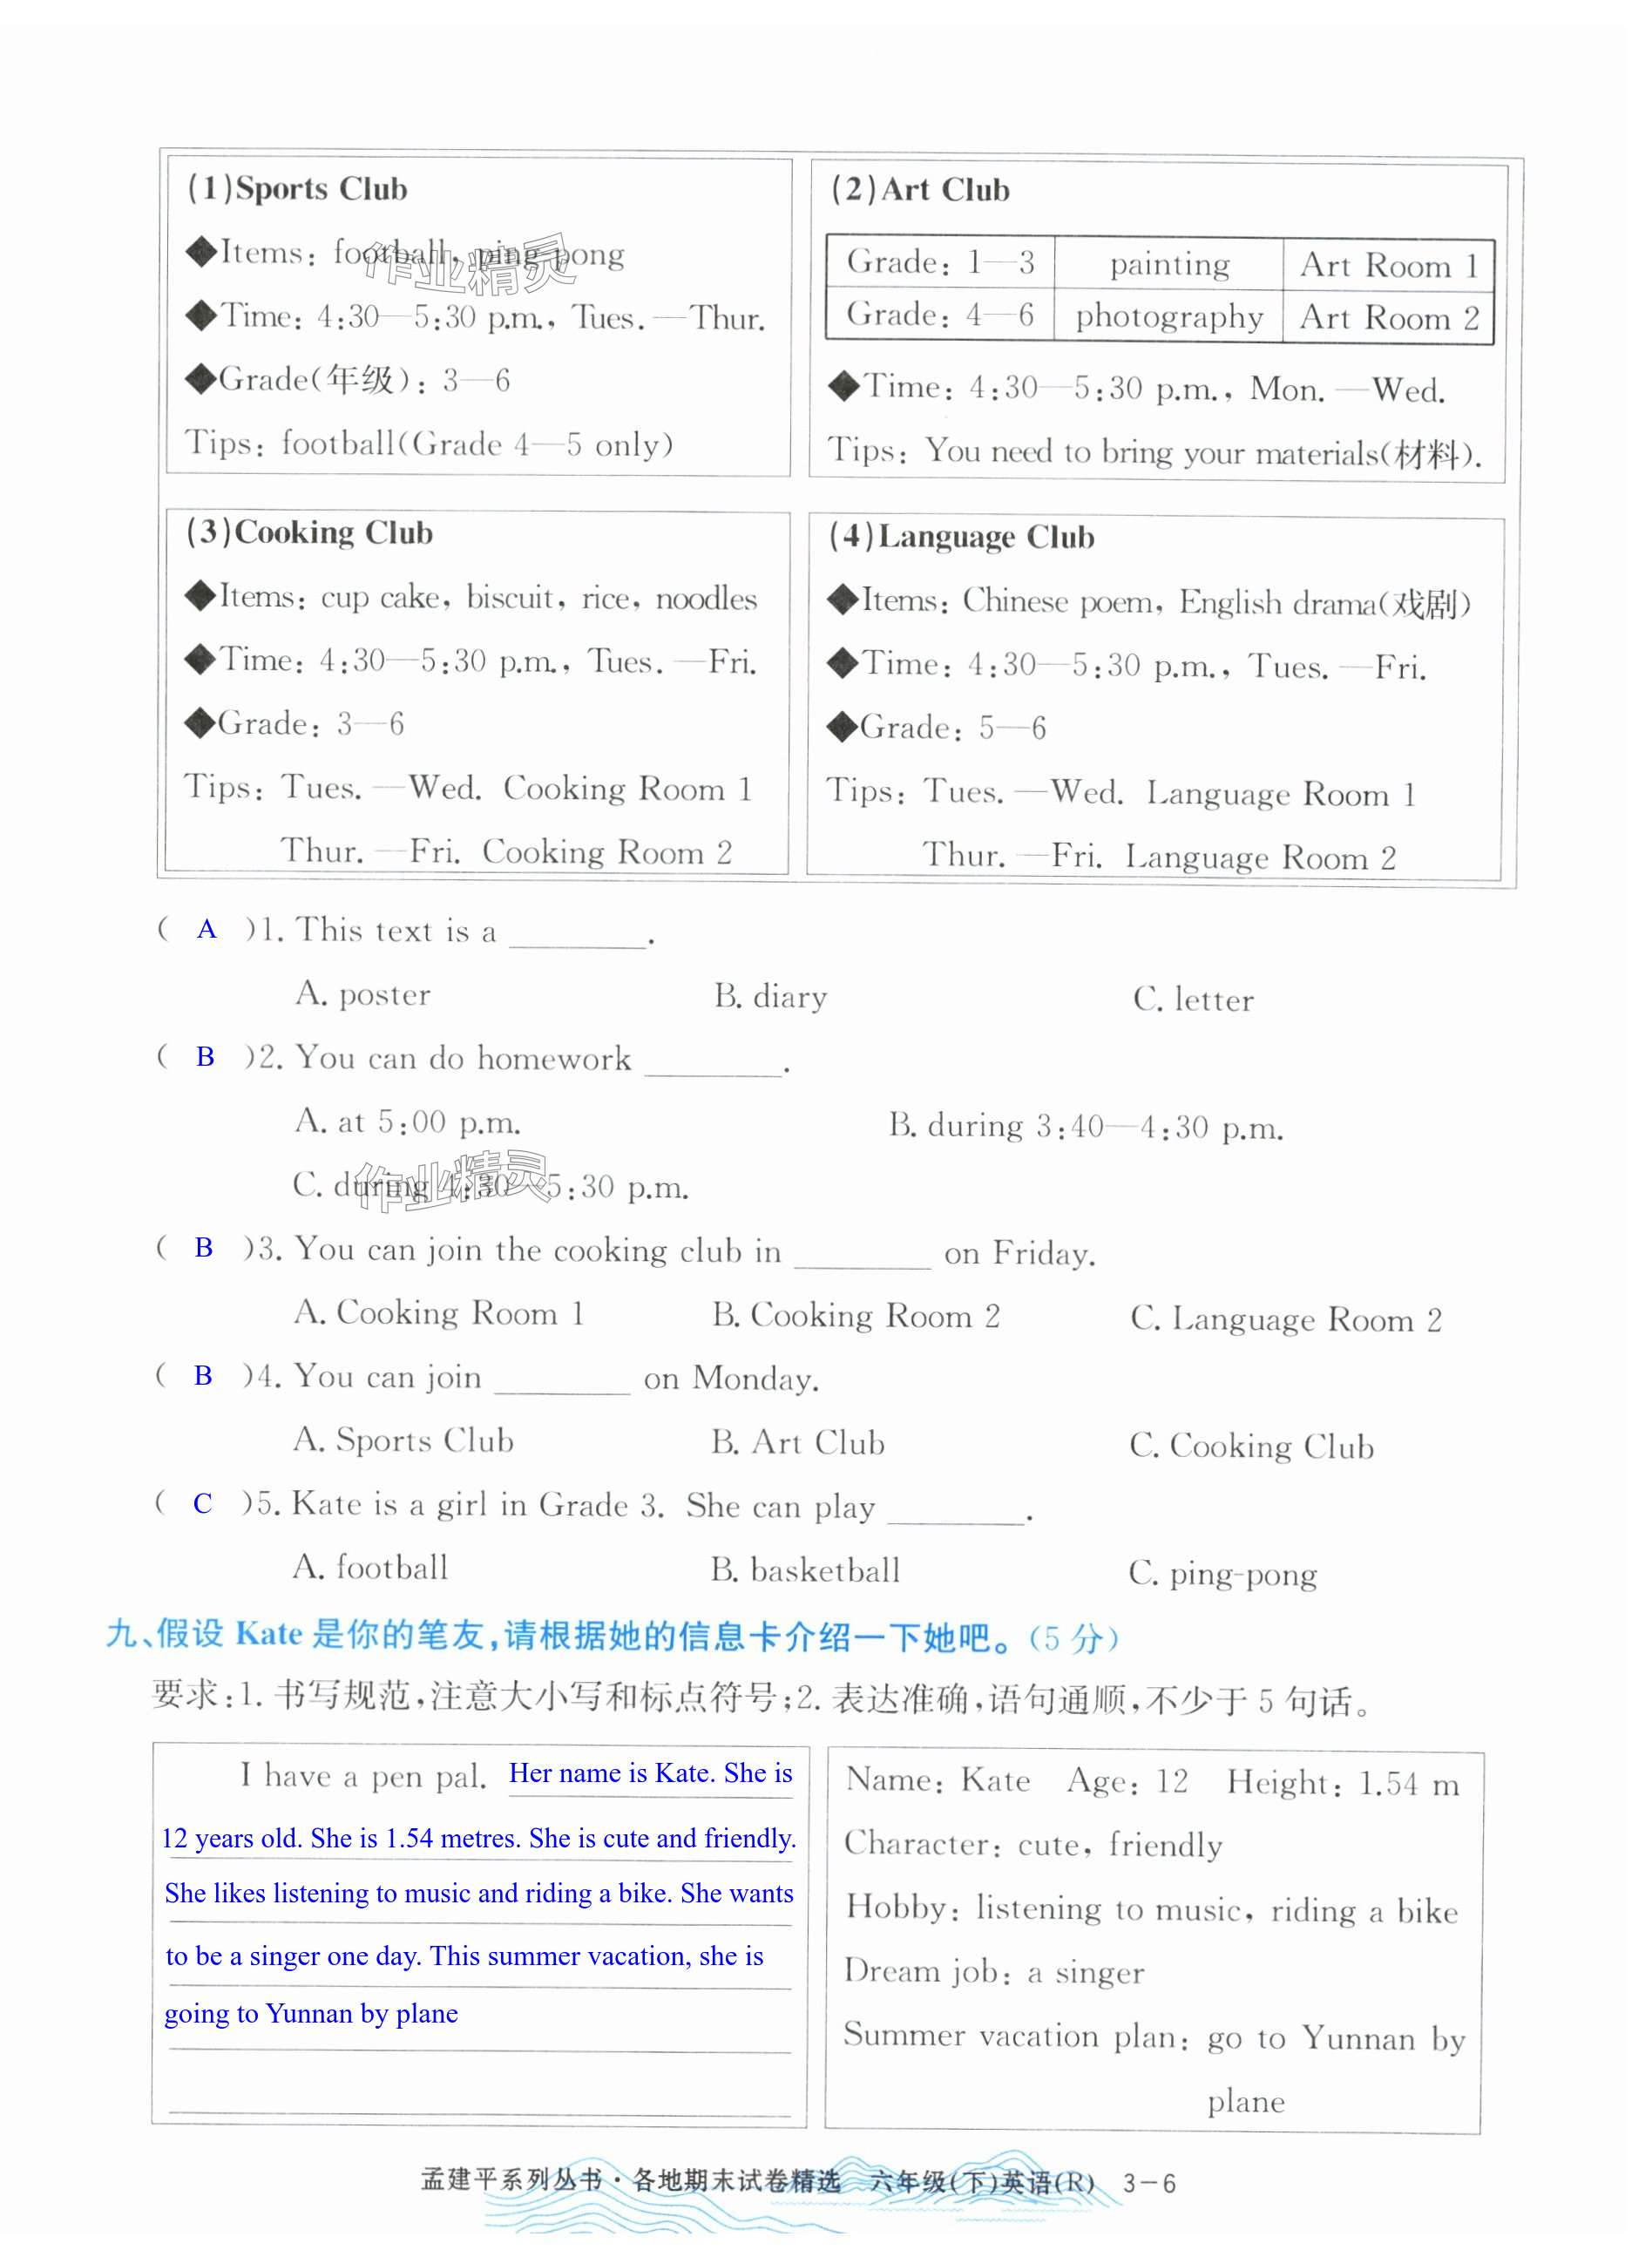 (1)Sports Club
◆Items: football, ping-pong
◆Time: 4:30—5:30 p.m., Tues. —Thur.
◆Grade(年级): 3—6
Tips: football(Grade 4—5 only)
(2)Art Club
Grade: 1—3 painting Art Room 1
Grade: 4—6 photography Art Room 2
◆Time: 4:30—5:30 p.m., Mon. —Wed.
Tips: You need to bring your materials(材料).
(3)Cooking Club
◆Items: cup cake, biscuit, rice, noodles
◆Time: 4:30—5:30 p.m., Tues. —Fri.
◆Grade: 3—6
Tips: Tues. —Wed. Cooking Room 1
Thur. —Fri. Cooking Room 2
(4)Language Club
◆Items: Chinese poem, English drama(戏剧)
◆Time: 4:30—5:30 p.m., Tues. —Fri.
◆Grade: 5—6
Tips: Tues. —Wed. Language Room 1
Thur. —Fri. Language Room 2
( A )1. This text is a ________.
A. poster B. diary C. letter
( B )2. You can do homework ________.
A. at 5:00 p.m. B. during 3:40—4:30 p.m.
C. during 4:30—5:30 p.m.
( B )3. You can join the cooking club in ________ on Friday.
A. Cooking Room 1 B. Cooking Room 2 C. Language Room 2
( B )4. You can join ________ on Monday.
A. Sports Club B. Art Club C. Cooking Club
( C )5. Kate is a girl in Grade 3. She can play ________.
A. football B. basketball C. ping-pong
九、假设 Kate 是你的笔友,请根据她的信息卡介绍一下她吧。(5 分)
要求:1. 书写规范,注意大小写和标点符号;2. 表达准确,语句通顺,不少于 5 句话。
I have a pen pal. Her name is Kate. She is
12 years old. She is 1.54 metres. She is cute and friendly.
She likes listening to music and riding a bike. She wants
to be a singer one day. This summer vacation, she is
going to Yunnan by plane
Name: Kate Age: 12 Height: 1.54 m
Character: cute, friendly
Hobby: listening to music, riding a bike
Dream job: a singer
Summer vacation plan: go to Yunnan by
plane
孟建平系列丛书·各地期末试卷精选 六年级(下)英语(R) 3-6
作业精灵
作业精灵